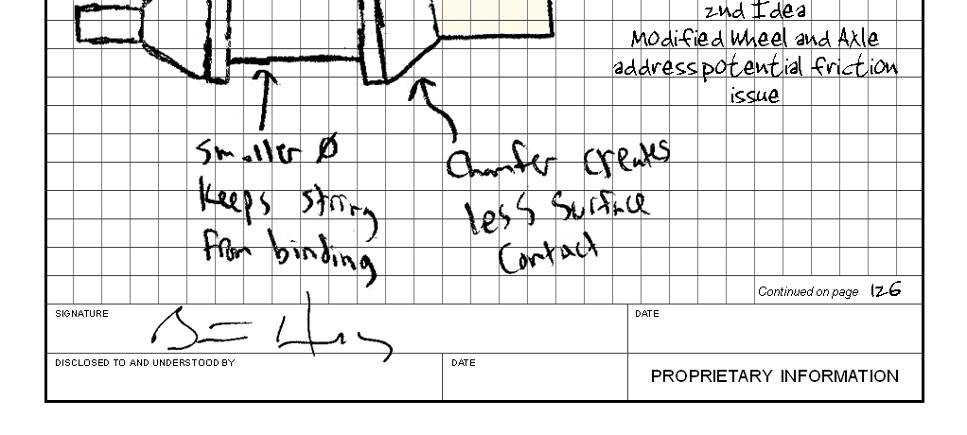 2nd Idea
Modified Wheel and Axle
address potential friction
issue
Smaller Ø
Keeps string
from binding
Chamfer creates
less surface
contact
Continued on page 126
SIGNATURE
DATE
DISCLOSED TO AND UNDERSTOOD BY
DATE
PROPRIETARY INFORMATION